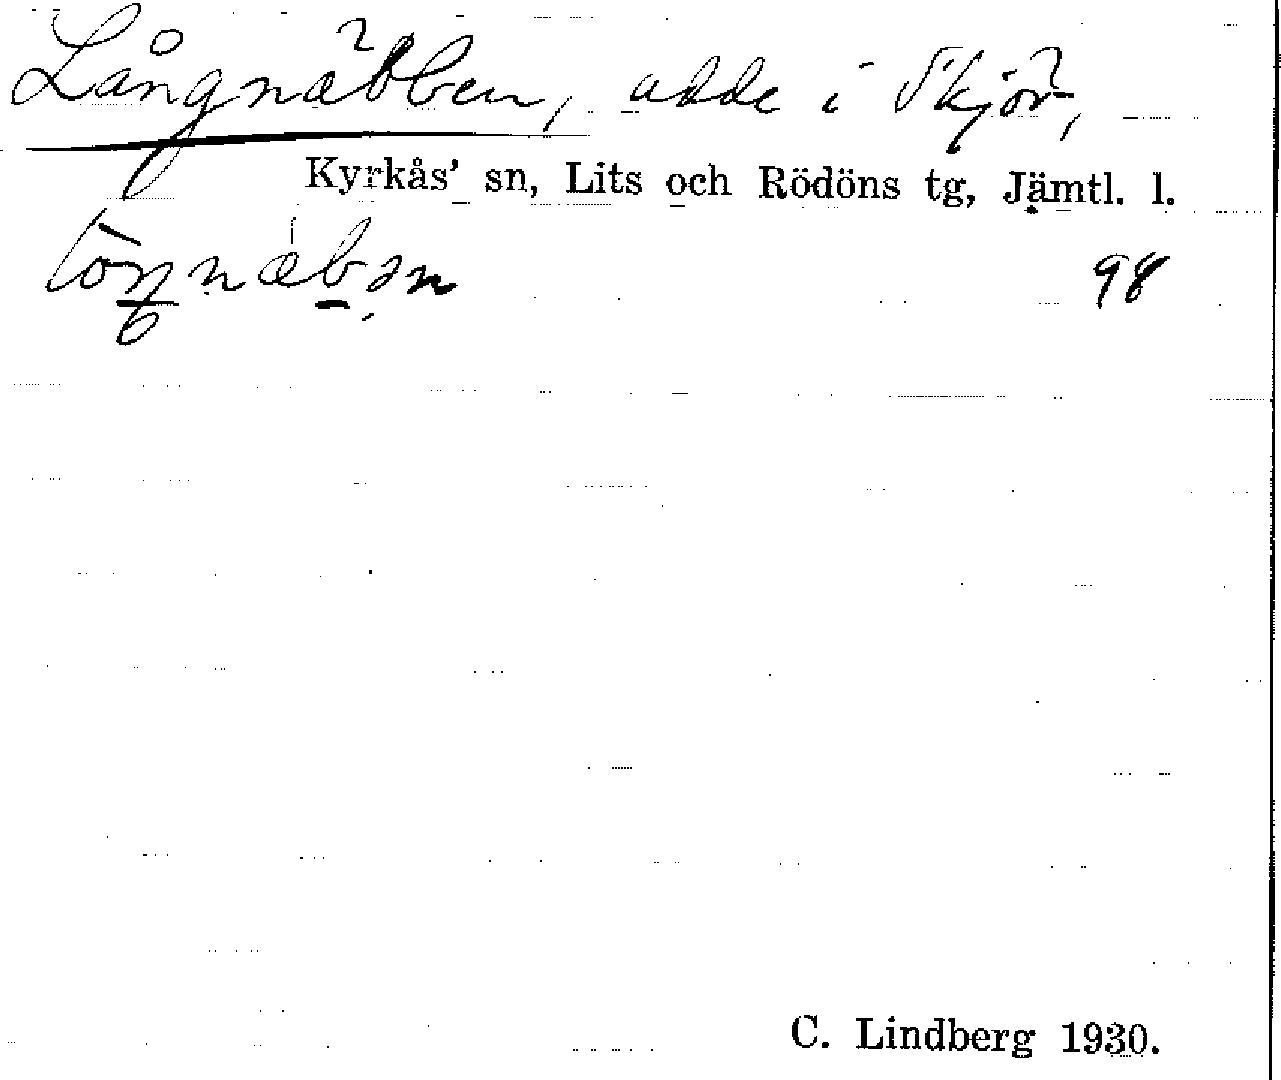 Långnäbben, udde i Skjör,
Kyrkås' sn, Lits och Rödöns tg, Jämtl. l.
98
C. Lindberg 1930.